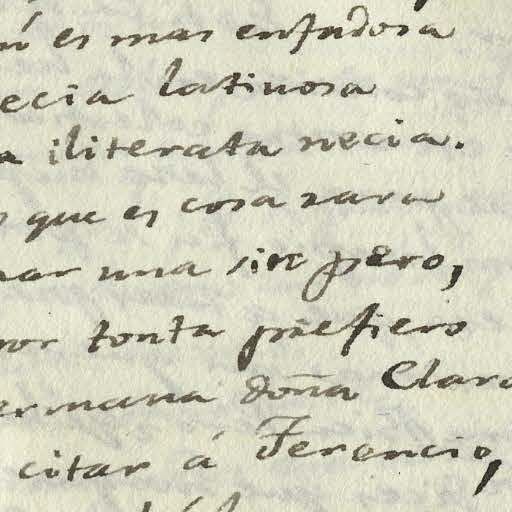 es mas enfadosa
ecia latinosa
a iliterata necia.
que es cosa rara
una sin pero,
por tonta prefiero
ermana doña Clara
citar á Terencio,